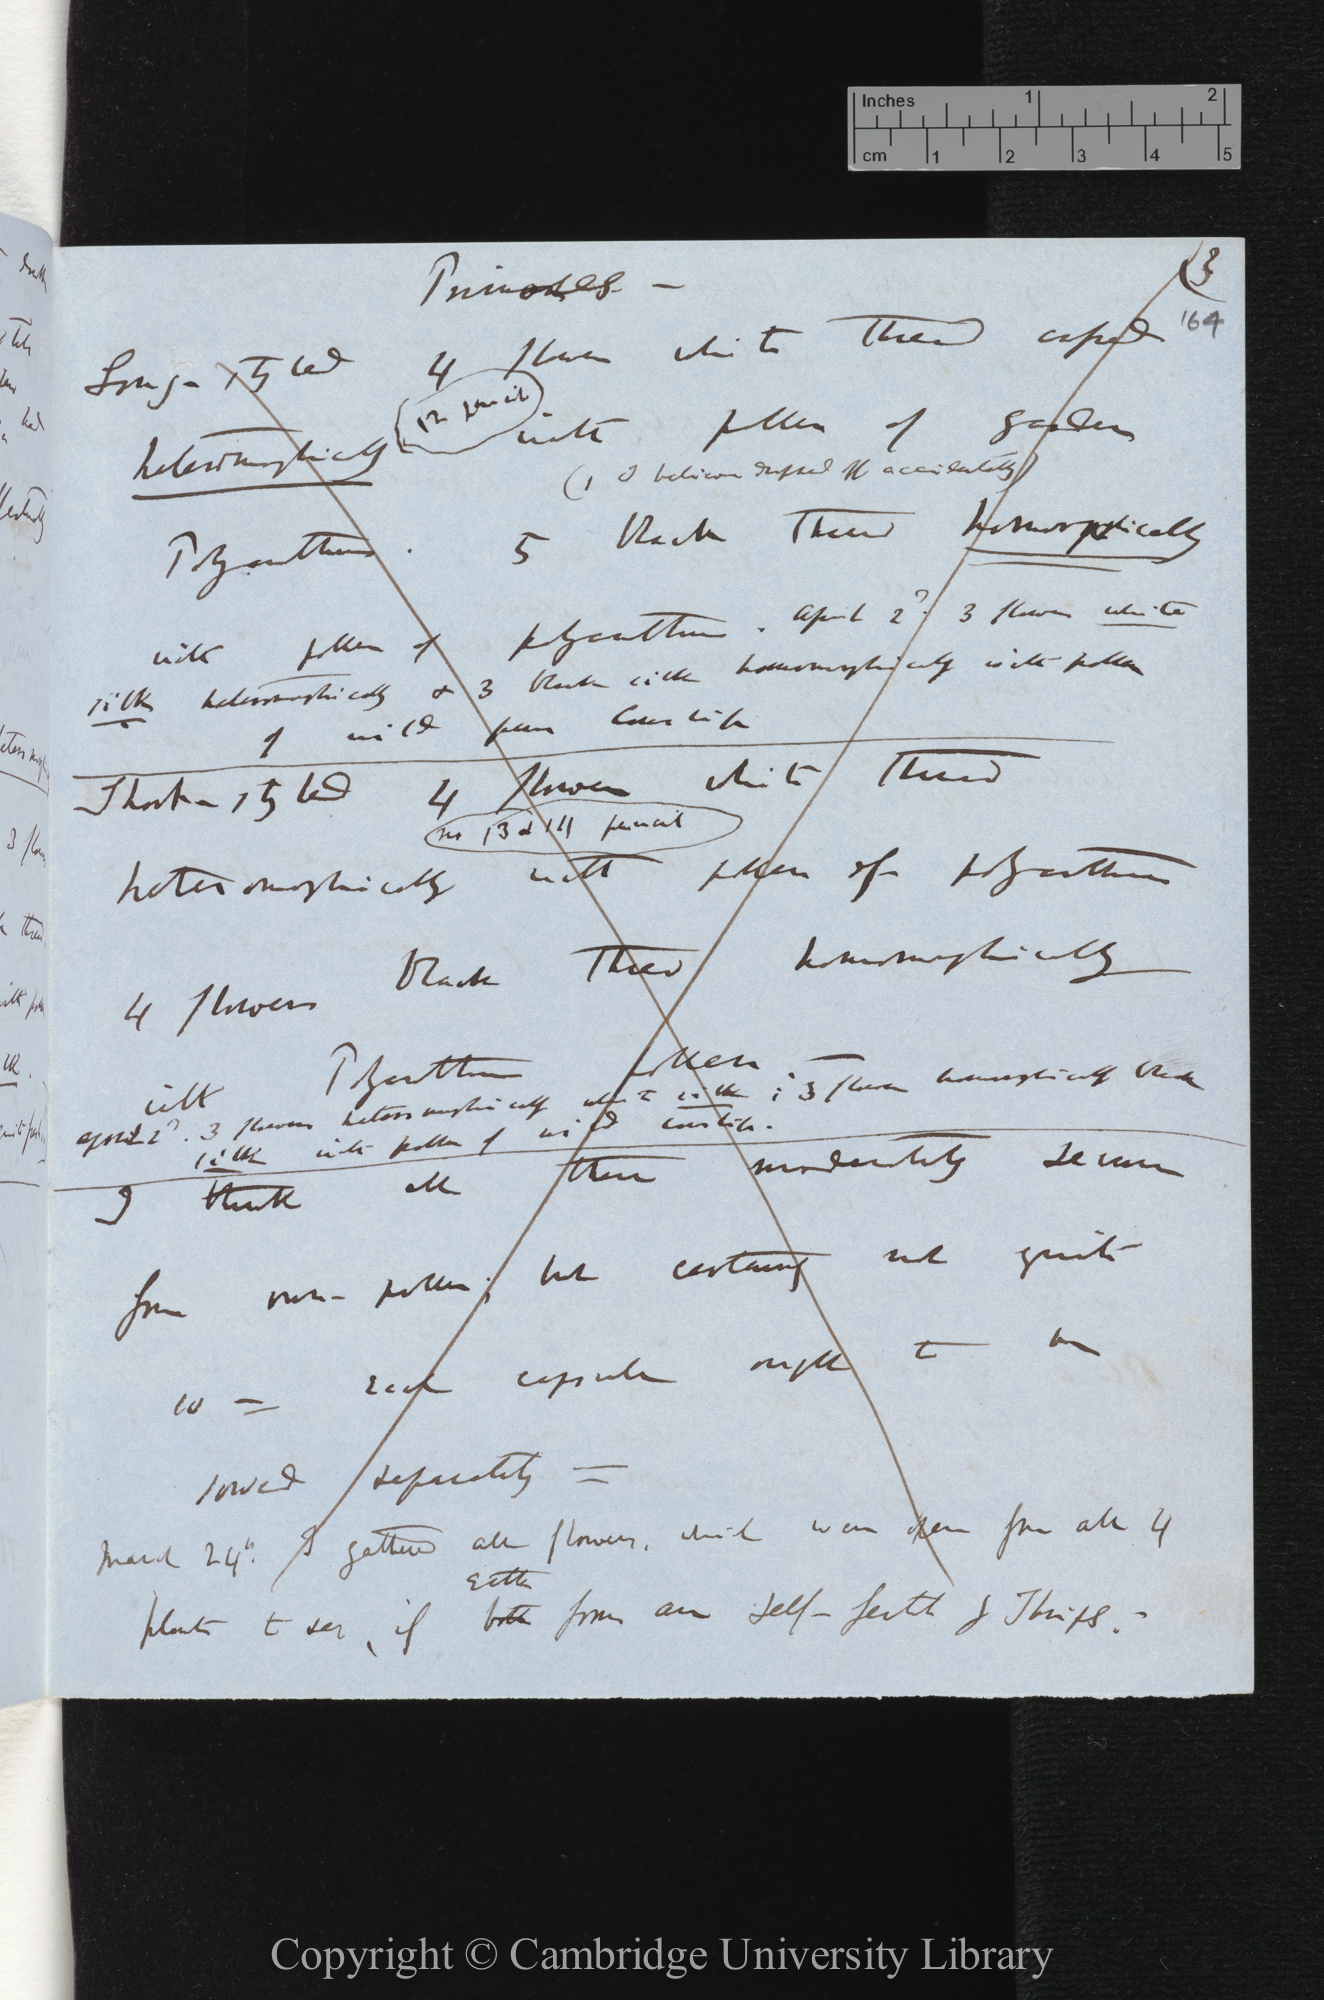 Primroses —
(3
164
Long-styled 4 flowers white thread crossed
(12 pencil)
heteromorphically with pollen of garden
(1 I believe dropped off accidentally)
Polyanthus. 5 black thread homomorphically
with pollen of polyanthus. April 2d. 3 flowers white
silk heteromorphically & 3 black silk homomorphically with pollen
of wild pure Cowslip
Short-styled 4 flowers white thread
(no 13 & 14 pencil)
heteromorphically with pollen of polyanthus
4 flowers black thread homomorphically
with Polyanthus pollen.
April 2d. 3 flowers heteromorphically white silk; 3 flowers homomorphically black
silk with pollen of wild cowslip.
I think all these moderately secure
from own-pollen; but certainly not quite
so = each capsule ought to be
sowed separately =
March 24th. I gathered all flowers, which were open from all 4
plants to see, if both either form are self-fertile & Thrips.—
Inches 1 2
cm 1 2 3 4 5
Copyright © Cambridge University Library